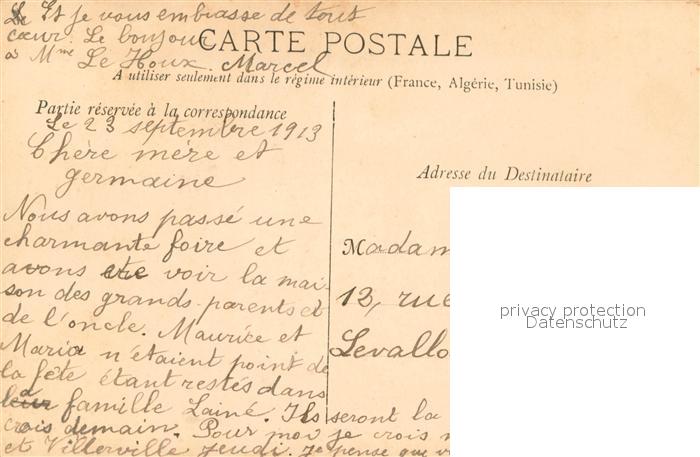 Et je vous embrasse de tout
cœur. Le bonjour
à Mme Le Houx. Marcel
CARTE POSTALE
A utiliser seulement dans le régime intérieur (France, Algérie, Tunisie)
Partie réservée à la correspondance
Le 23 septembre 1913
Chère mère et
germaine
Nous avons passé une
charmante foire et
avons été voir la mai-
son des grands-parents et
de l'oncle. Maurice et
Maria n'étaient point de
la fête étant restés dans
la famille Lainé. Ils seront la
crois demain. Pour moi je crois
et Villerville jeudi. Je pense que
Adresse du Destinataire
Madam
12, rue
Levallo
privacy protection
Datenschutz